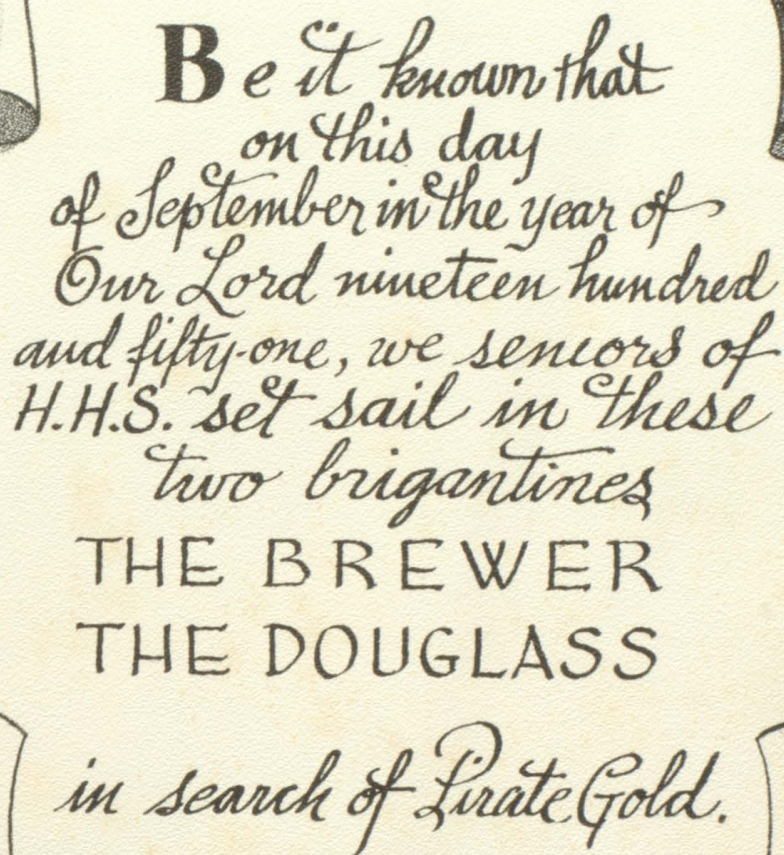 Be it known that
on this day
of September in the year of
Our Lord nineteen hundred
and fifty-one, we seniors of
H.H.S. set sail in these
two brigantines
THE BREWER
THE DOUGLASS
in search of Pirate Gold.